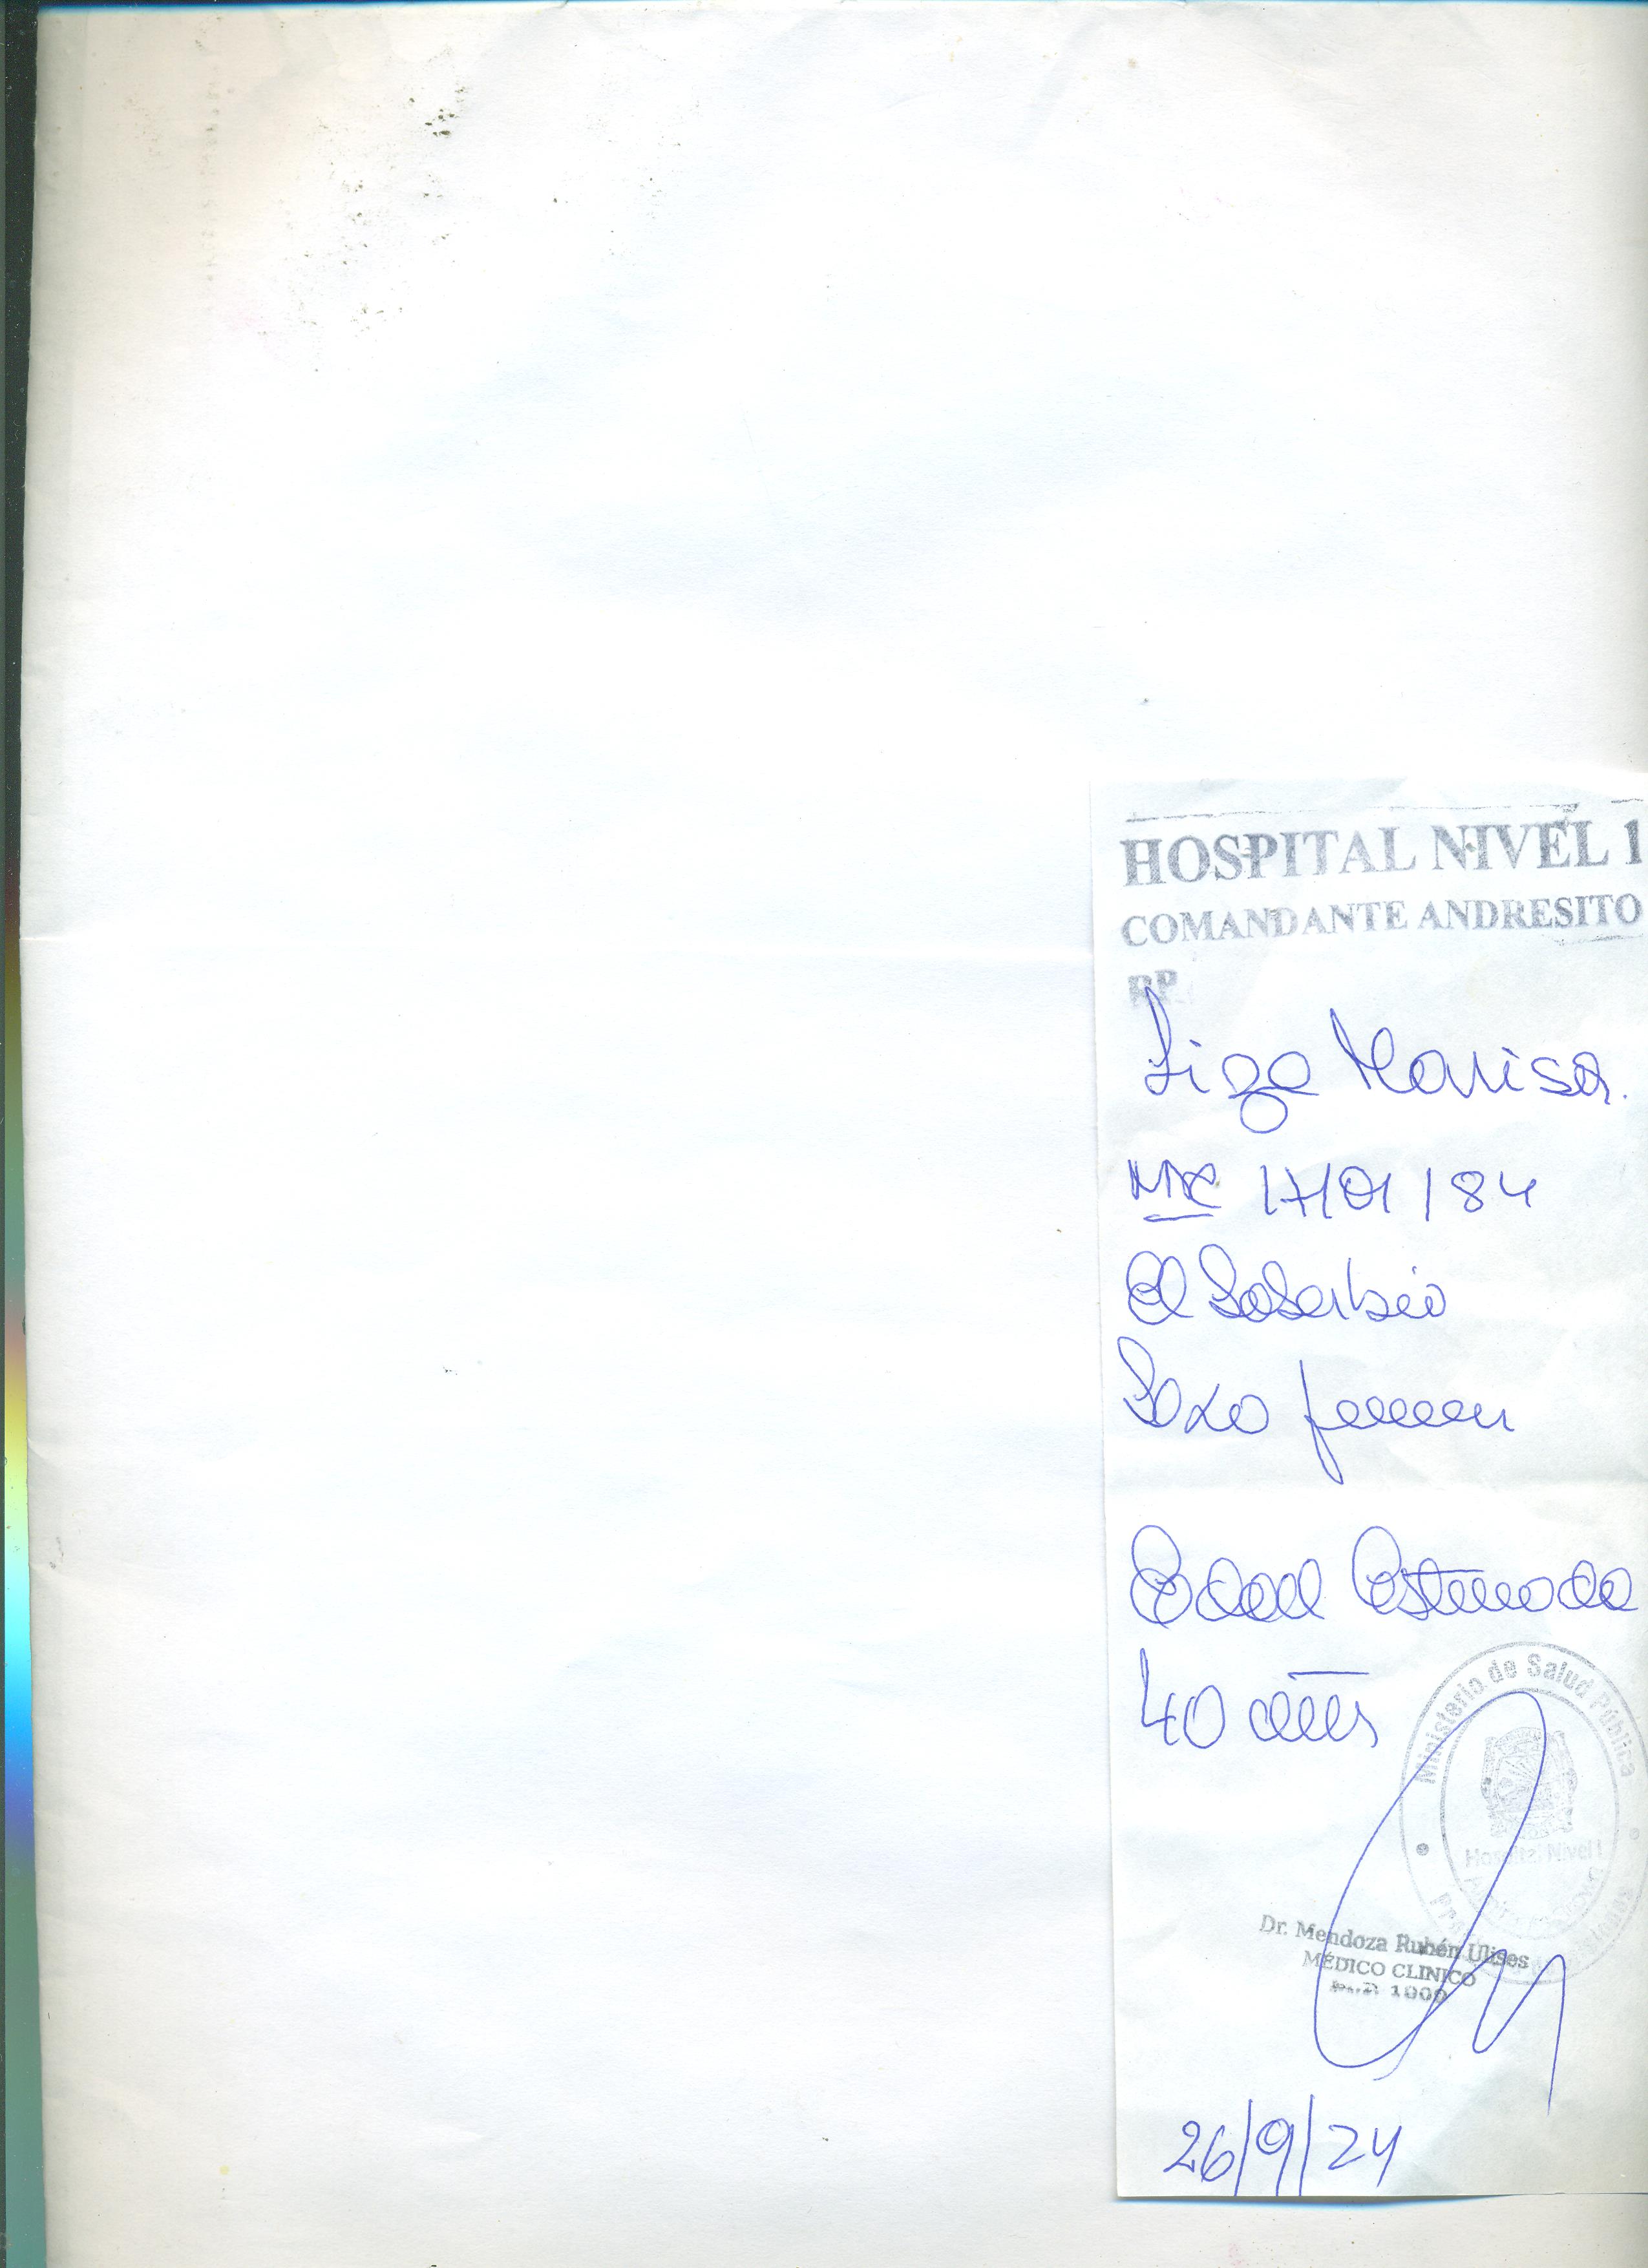 HOSPITAL NIVEL 1
COMANDANTE ANDRESITO
RP
Marisa.
17/01/84
El Soberbio
Sexo femen
Edad Estimada
40 años
Ministerio de Salud Pública
Hospital Nivel I
Dr. Mendoza Rubén Ulises
MÉDICO CLINICO
26/9/24